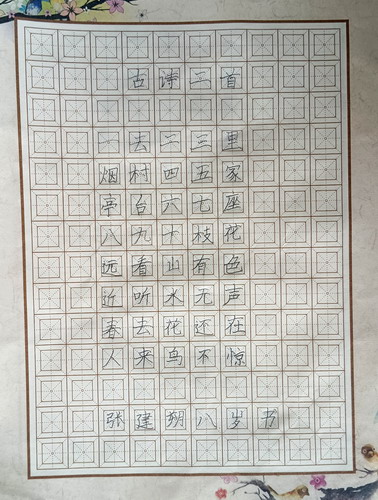 古诗二首
一去二三里
烟村四五家
亭台六七座
八九十枝花
远看山有色
近听水无声
春去花还在
人来鸟不惊
张建朔八岁书